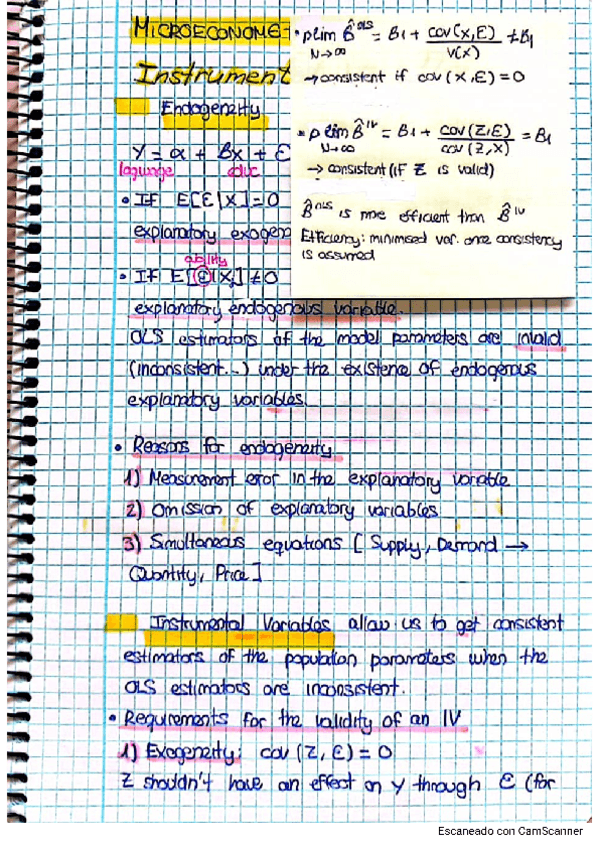 MICROECONOME
Instrument
Endogeneity
Y = α + Bx + ε
lagunage educ
• If E[ε|X] = 0
explanatory exogen
ability
• If E[ε|X] ≠ 0
explanatory endogenous variable.
OLS estimators of the model parameters are invalid
(inconsistent...) under the existence of endogenous
explanatory variables.
• Reasons for endogeneity
1) Measurement error in the explanatory variable
2) Omission of explanatory variables
3) Simultaneous equations [Supply, Demand →
Quantity, Price]
Instrumental Variables allow us to get consistent
estimators of the population parameters when the
OLS estimators are inconsistent.
• Requirements for the validity of an IV
1) Exogeneity: cov (Z, ε) = 0
Z shouldn't have an effect on Y through ε (for
• plim B̂ᴼᴸˢ = B1 + cov(x,ε) / V(x) ≠ B1
N→∞
→ consistent if cov(x,ε) = 0
• plim B̂ᴵⱽ = B1 + cov(Z,ε) / cov(Z,X) = B1
N→∞
→ consistent (if Z is valid)
B̂ᴼᴸˢ is more efficient than B̂ᴵⱽ
Efficiency: minimised var. once consistency
is assumed
Escaneado con CamScanner